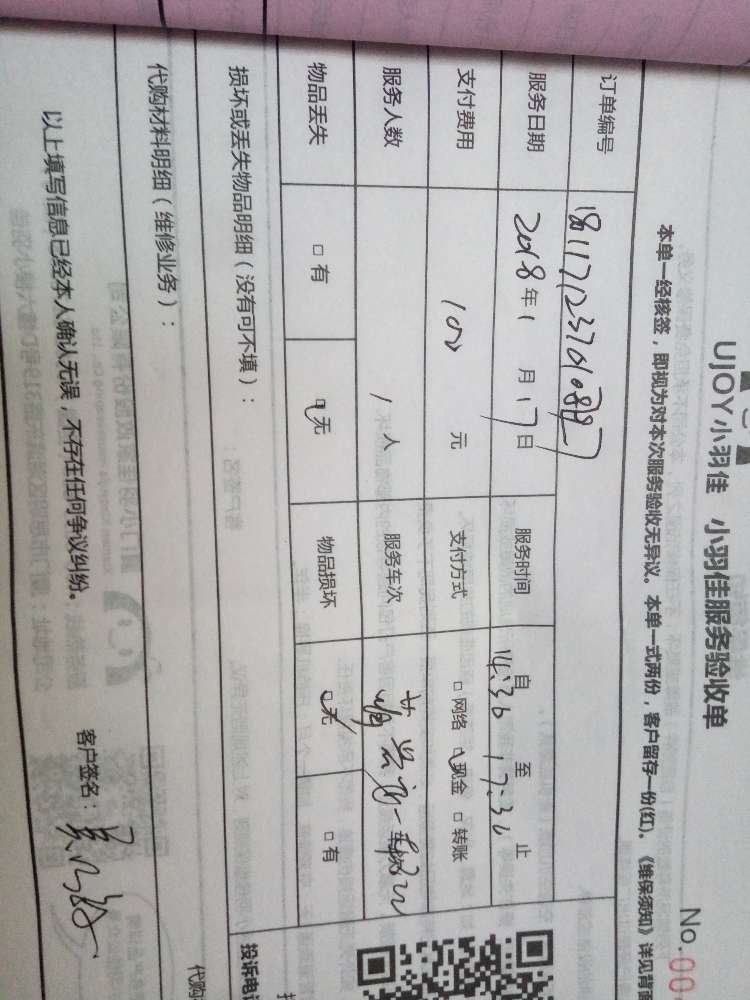 UJOY小羽佳 小羽佳服务验收单
No.00
本单一经核签，即视为对本次服务验收无异议。本单一式两份，客户留存一份(红)。《维保须知》详见背面
订单编号
服务日期 2018年1月17日 服务时间 自14:30至17:30止
支付费用 100 元 支付方式 □网络 现金 □转账
服务人数 1人 服务车次 车次
物品丢失 □有 无 物品损坏 无 □有
损坏或丢失物品明细（没有可不填）：
投诉电
代购材料明细（维修业务）：
代购
以上填写信息已经本人确认无误，不存在任何争议纠纷。 客户签名：